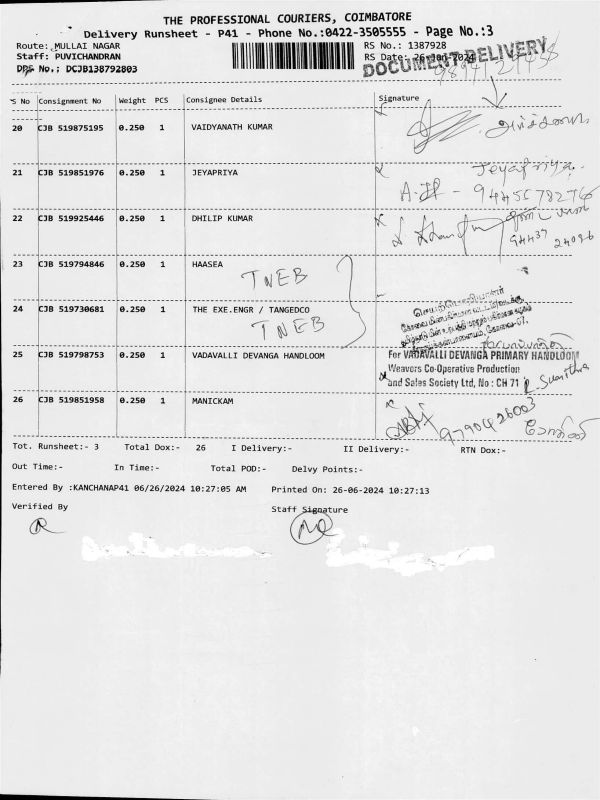 THE PROFESSIONAL COURIERS, COIMBATORE
Delivery Runsheet - P41 - Phone No.:0422-3505555 - Page No.:3
Route: MULLAI NAGAR RS No.: 1387928
Staff: PUVICHANDRAN RS Date: 26-Jun-2024
DRS No.: DCJB138792803 DOCUMENT DELIVERY
S No Consignment No Weight PCS Consignee Details Signature
20 CJB 519875195 0.250 1 VAIDYANATH KUMAR
21 CJB 519851976 0.250 1 JEYAPRIYA Jeyapriya
9445578276
22 CJB 519925446 0.250 1 DHILIP KUMAR
94437 24096
23 CJB 519794846 0.250 1 HAASEA
TNEB
24 CJB 519730681 0.250 1 THE EXE.ENGR / TANGEDCO
TNEB
25 CJB 519798753 0.250 1 VADAVALLI DEVANGA HANDLOOM For VADAVALLI DEVANGA PRIMARY HANDLOOM
Weavers Co-Operative Production
and Sales Society Ltd, No : CH 71
26 CJB 519851958 0.250 1 MANICKAM
9790426003
Tot. Runsheet:- 3 Total Dox:- 26 I Delivery:- II Delivery:- RTN Dox:-
Out Time:- In Time:- Total POD:- Delvy Points:-
Entered By :KANCHANAP41 06/26/2024 10:27:05 AM Printed On: 26-06-2024 10:27:13
Verified By Staff Signature